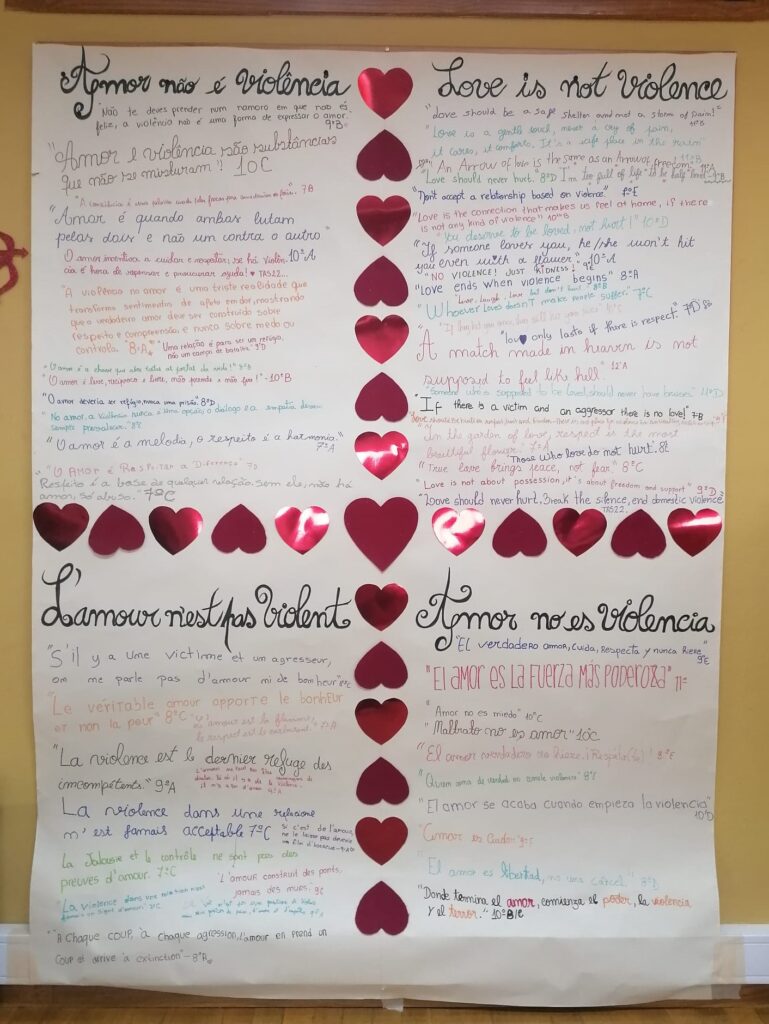 Amor não é Violência
"Não te deves prender num namoro em que não és
feliz, a violência não é uma forma de expressar o amor.
9ºB
"Amor e violência são substâncias
que não se misturam"! 10C
7ºB
"Amor é quando ambos lutam
pelos dois e não um contra o outro"
O amor incentiva a cuidar e respeitar; se há violên- 10ºA
cia é hora de repensar e procurar ajuda! TAS22...
"A violência no amor é uma triste realidade que
transforma sentimentos de afeto em dor, mostrando
que o verdadeiro amor deve ser construído sobre
respeito e compreensão, e nunca sobre medo ou
controlo. "8ºA
"Uma relação é para ser um refúgio,
não um campo de batalha" 9ºD
"O amor é livre, recíproco e leve, não prende e não fere!"-10ºB
"O amor deveria ser refúgio, nunca uma prisão" 8ºD
"No amor, a violência nunca é uma opção, o diálogo e a empatia devem
sempre prevalecer." 8ºE
"O amor é a melodia, o respeito é a harmonia."
7ºA
"O AMOR é Respeitar a Diferença" 7D
Respeito é a base de qualquer relação. Sem ele, não há
amor, só abuso." 7ºC
Love is not violence
"Love should be a safe shelter and not a storm of pain!"
11ºB
"Love is a gentle touch, never a cry of pain,
it cares, it comforts. It's a safe place in the rain"
"An Arrow of love is the same as an Arrow of freedom." 11ºB
"Love should never hurt." 8ºD "I'm too full of life to be half loved" 9ºB
"Don't accept a relationship based on violence." 7ºE
"Love is the connection that makes us feel at home, if there
is not any kind of violence" 10ºB
"You deserve to be loved, not hurt!" 10ºD
"If someone loves you, he/she won't hit
you even with a flower." 10ºA
"NO VIOLENCE! JUST KINDNESS!" 9E
"Love ends when violence begins" 8ºA
"Love, laugh, Love but don't hurt" 8ºB
"Whoever loves doesn't make people suffer." 7ºC
"love only lasts if there is respect." 7D
"A match made in heaven is not
supposed to feel like hell."
12ºA
"Someone who is supposed to be loved should never have bruises" 11ºD
"If there is a victim and an aggressor there is no love" 7ºB
"In the garden of love, respect is the most
beautiful flower." 7ºA
"Those who love do not hurt." 8E
"True love brings peace, not fear" 8ºC
"Love is not about possession, it's about freedom and support" 9ºD
"Love should never hurt. Break the silence, end domestic violence"
TAS22.
L'amour n'est pas Violent
"S'il y a une victime et un agresseur,
on me parle pas d'amour ni de bonheur"
"Le véritable amour apporte le bonheur
et non la peur" 8ºC
"L'amour est la fleur,
le respect est le
7ºA
"La violence est le dernier refuge des
incompétents." 9ºA
La violence dans une relacione
n'est jamais acceptable 7ºC
si c'est de l'amour,
ne le laisse pas devenir
un film d'horreur-9ºA
La Jalousie et le contrôle ne sont pas des
preuves d'amour. 7ºC
"L'amour construit des ponts,
jamais des murs. 9E
"La violence dans une relation n'est
jamais un signe d'amour".
"À CHAQUE COUP, À CHAQUE AGRESSION, l'AMOUR EN PREND UN
COUP et ARRIVE À EXTINCTION"-8ºA
Amor no es Violencia
"El verdadero amor, Cuida, Respecta y nunca Hiere"
9E
"El AMOR ES LA FUERZA MÁS PODEROZA" 11º
"Amor no es miedo" 10ºC
"Maltrato no es amor" 10ºC
"El amor verdadero no hiere, ¡Respétalo!"
"Quien ama de verdad no emplea violencia" 8ºE
"El amor se acaba cuando empieza la violencia"
10ºD
"Amar es Cuidar"
"El amor es libertad, no una cárcel." 8ºD
"Donde termina el amor, comienza el poder, la violencia
y el terror." 10ºB/C